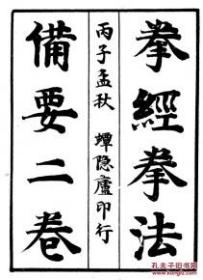 拳經拳法
備要二卷
丙子孟秋 蟫隐廬印行
孔夫子旧书网